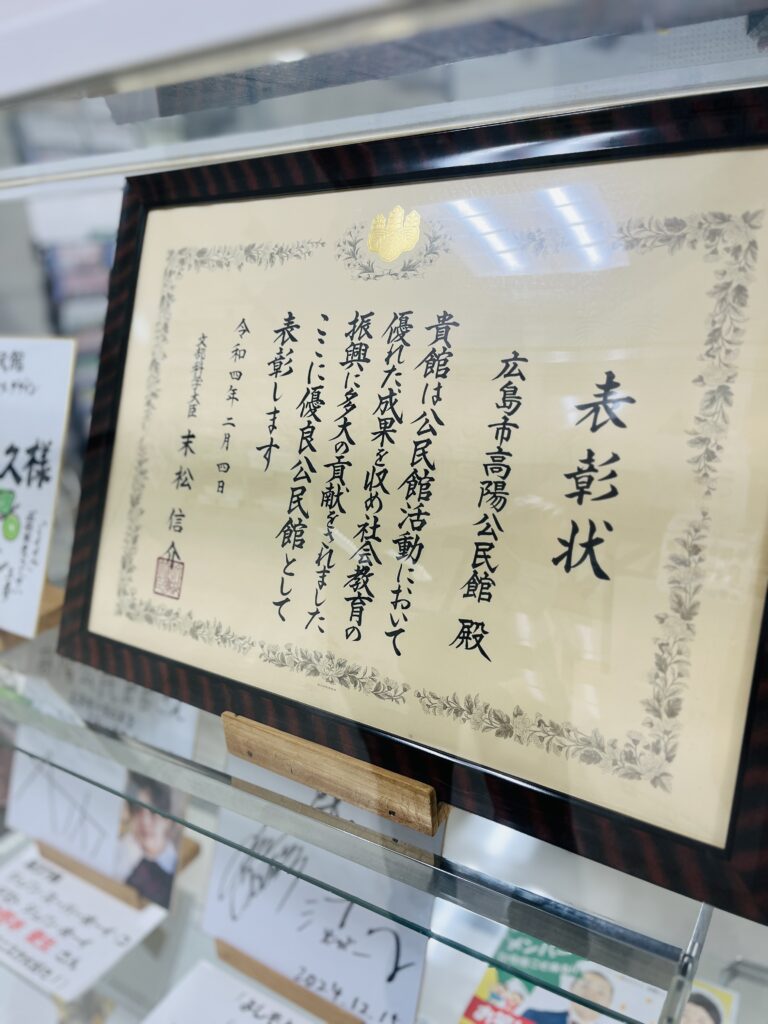 表彰状
広島市高陽公民館 殿
貴館は公民館活動において
優れた成果を収め社会教育の
振興に多大の貢献をされました
ここに優良公民館として
表彰します
令和四年二月四日
文部科学大臣 末松信介
久様
2024.12.1
メンバー